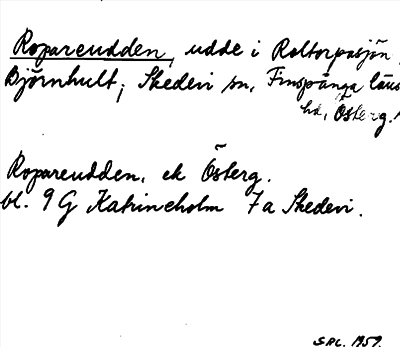 Ropareudden, udde i Roltorpasjön,
Björnhult, Skedevi sn, Finspånga läns
hd, Österg.
Ropareudden, ek Österg.
bl. 9 G Katrineholm 7a Skedevi.
1959.